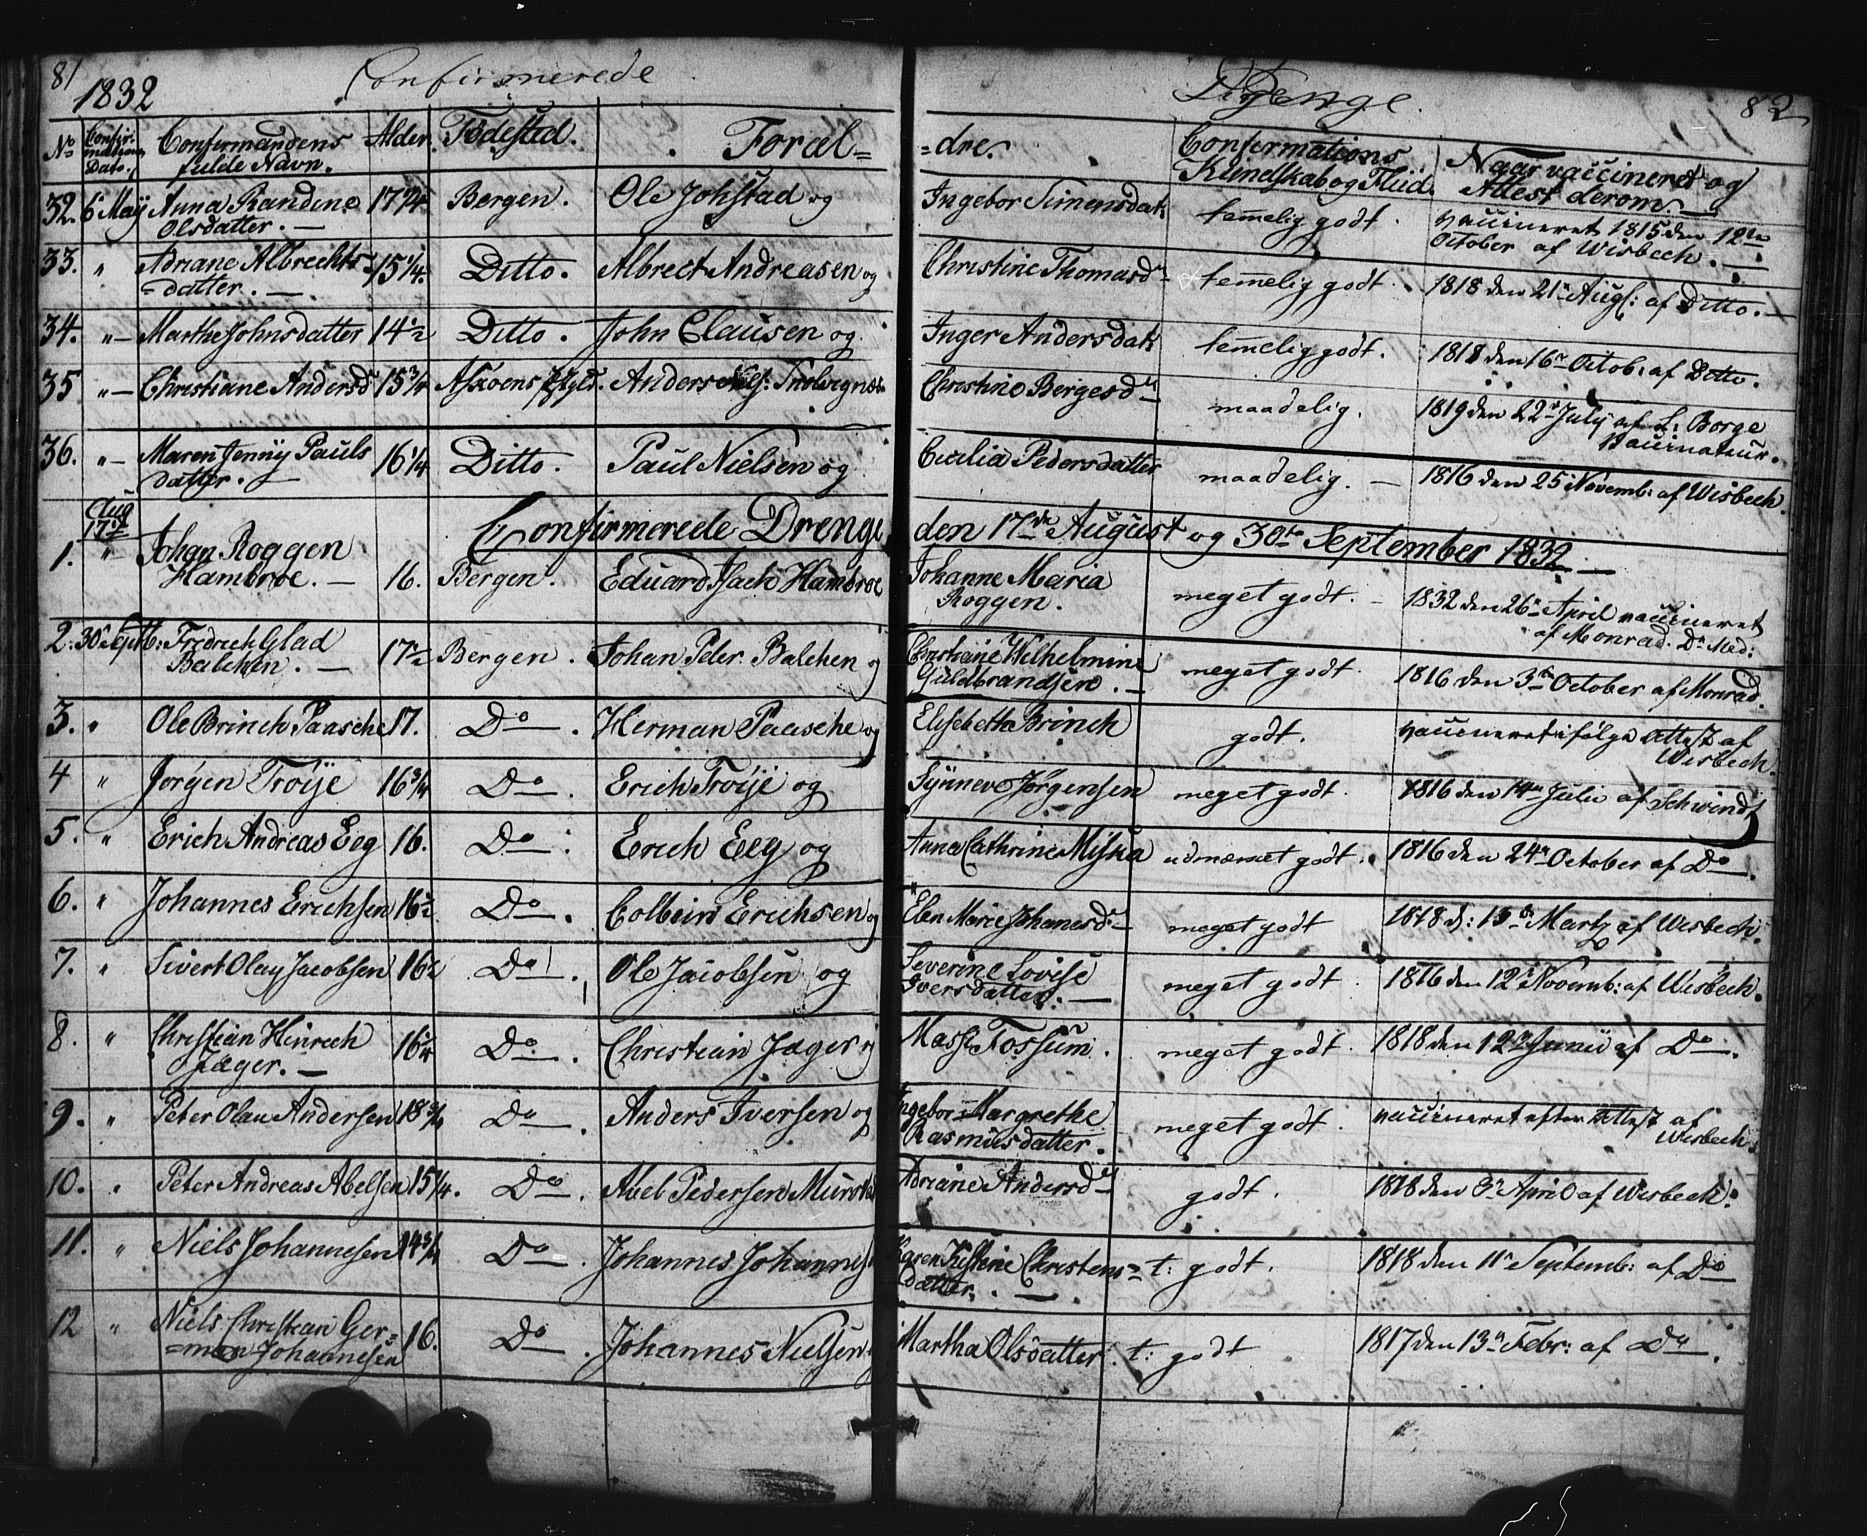 81
1832
Confirmerede
Drenge.
82
No
Confir-
mations
Dato.
Confirmandens
fulde Navn.
Alder.
Fødested.
Foræl=
=dre.
Confirmations
Kundskab og Fliid.
Naar vaccineret og
Attest derom.
32. 6 May Anna Randine 17 1/4. Bergen. Ole Johstad og Ingebor Simensdatr temelig godt. vaccineret 1815 den 12te
Olsdatter. — October af Wisbech. —
33. " Adriane Albrechts= 15 1/4. Ditto. Albrect Andreasen og Christine Thomasdr temelig godt. 1818 den 21r Augs: af Ditto. —
=datter. —
34. "— Marthe Johnsdatter 14 1/2 Ditto. John Clausen og Inger Andersdatr temelig godt. 1818 den 16r Octob: af Ditto.
35 "— Christiane Andersdr 15 3/4 Askoens Anders Christine Bergesdr maadelig. 1819 den 22r July af L: Borge
Vaccinateur.
36. "— Maren Jenny Pauls 16 1/4 Ditto. Paul Nielsen og Cecilia Pedersdatter maadelig. — 1816 den 25 Novemb: af Wisbech.
datter. —
Aug
17de
Confirmerede Drenge den 17de August og 30te September 1832 —
1. " Johan Roggen
Hambroe. — 16. Bergen. Eduard Isach Hambroe Johanne Maria meget godt. — 1832 den 26r April vaccineret
Roggen. af Monrad. Dr Med:
2. 30r Septb: Fredrech Glad 17 1/2 Bergen. Johan Peter Balchen og Christiane Wilhelmine meget godt 1816 den 3de October af Monrad.
Balchen. — Guldbrandsen. —
3. " Ole Brinch Paasche 17. Do. Herman Paasche og Elisebetha Brinch godt. vaccineret ifølge Attest af
Wisbech.
4 " Jørgen Troye 16 3/4 Do. Erich Troye og Synneve Jørgensen meget godt 1816 den 14de Julii af Schwindt
5. " Erich Andreas Eeg 16. Do. Erich Eeg og Anna Cathrine Miska udmærcet godt. 1816 den 24r October af Do.
6. " Johannes Erichsen 16 1/2 Do. Colbein Erichsen og Elen Marie Johanesdr meget godt 1818 d: 15de Martz af Wisbech.
7. " Sivert Olay Jacobsen 16 1/2 Do. Ole Jacobsen og Severine Lovise meget godt 1816 den 12r Novemb: af Wisbech.
Iversdatter. —
8. " Christian Hinrech 16 1/4 Do. Christian Jæger og Massi Fossum. meget godt 1818 den 12r Junii af Do.
Jæger. —
9. " Peter Olau Andersen 18 3/4 Do. Anders Iversen og Ingebor Margrethe meget godt. vaccineret efter Attest af
Rasmusdatter. Wisbech.
10. " Peter Andreas Abelsen 15 1/4. Do. Abel Pedersen Adriane Andersdr godt. 1818 den 3r April af Wisbech.
11. " Niels Johannesen 14 3/4 Do. Johannes Johannes Karen Kistine Christens= t: godt. 1818 den 11r Septemb: af Do
datter. —
12 " Niels Christian Ger= 16. Do. Johannes Nielsen Martha Olsdatter. t: godt 1817 den 13r Febr: af Do.
=man Johannesen